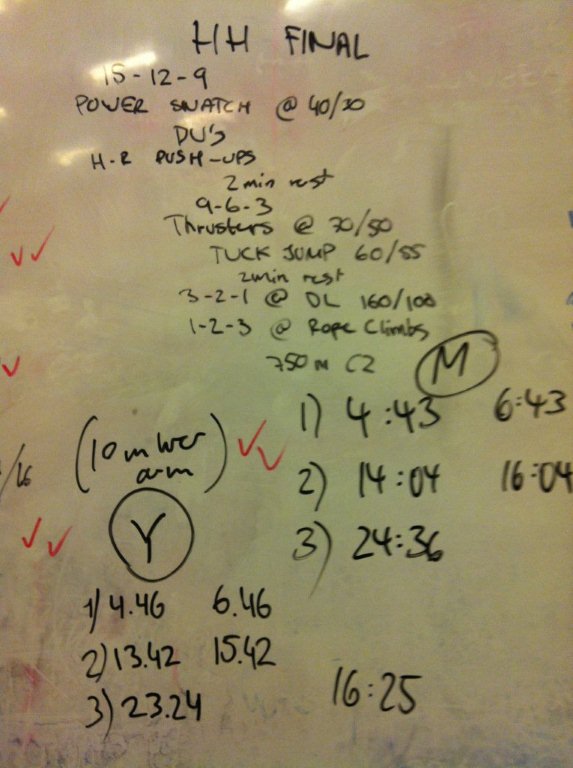 HH FINAL
15-12-9
POWER SNATCH @ 40/30
DU's
H-R PUSH-UPS
2min rest
9-6-3
Thrusters @ 70/50
TUCK JUMP 60/55
2min rest
3-2-1 @ DL 160/100
1-2-3 @ Rope Climbs
750m C2
M
1) 4:43 6:43
2) 14:04 16:04
3) 24:36
Y
1) 4.46 6.46
2) 13.42 15.42
3) 23.24
16:25